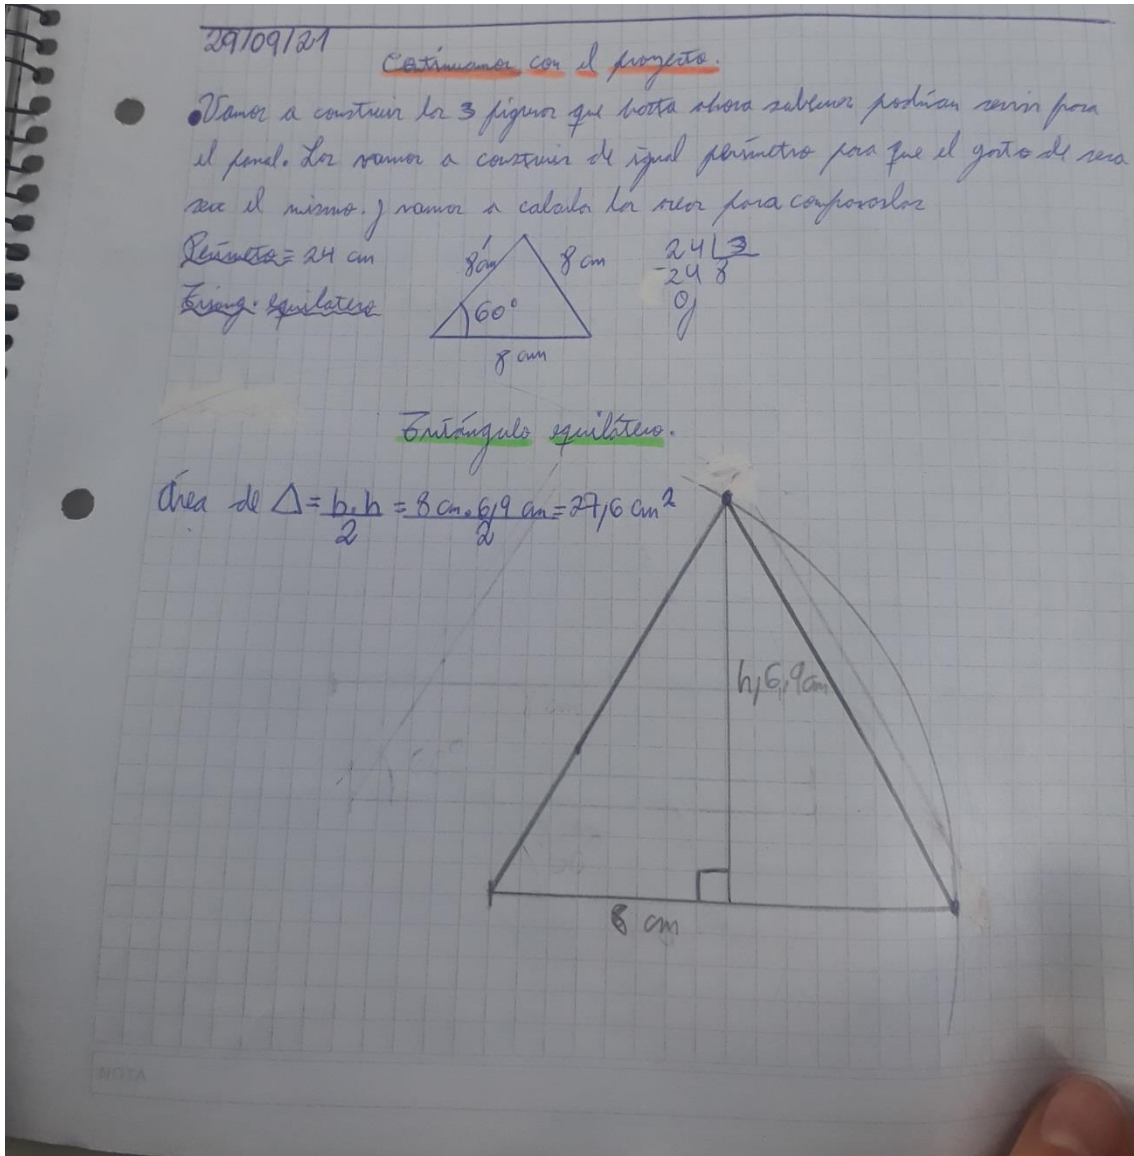 29/09/21
Continuamos con el proyecto.
•Vamos a construir las 3 figuras que hasta ahora sabemos podrían servir para
el panal. Las vamos a construir de igual perímetro para que el gasto de cera
sea el mismo. y vamos a calcular las áreas para compararlas
Perímetro = 24 cm
8cm
8 cm
24 | 3
-24 8
0
Triang. equilatero
60°
8 cm
Triángulo equilátero.
Área de Δ = b.h/2 = 8 cm.6,9 cm/2 = 27,6 cm²
h,6,9cm
8 cm
NOTA